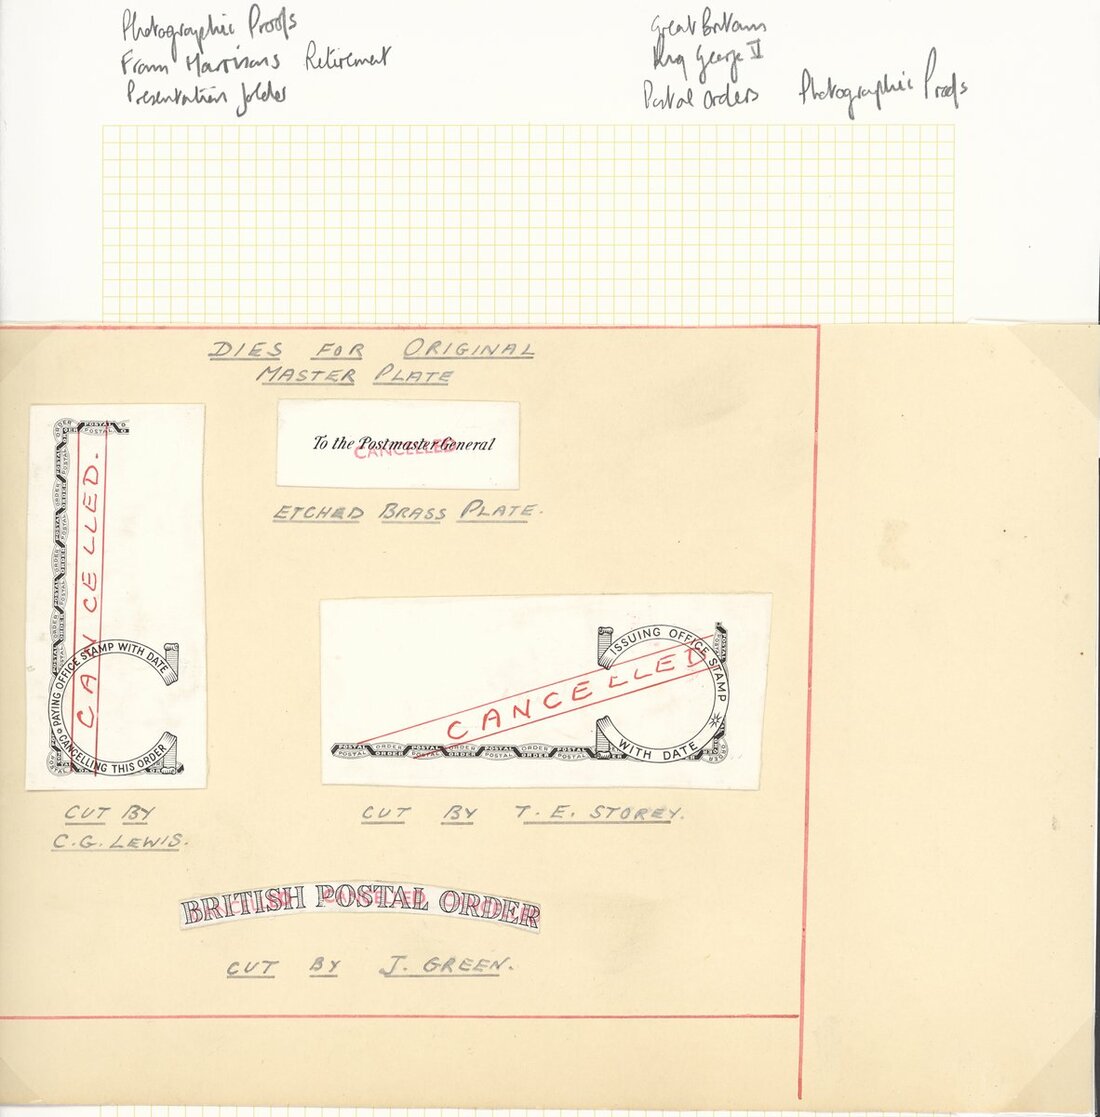 Photographic Proofs
From Harrisons Retirement
Presentation folder
Great Britain
King George V
Postal Orders Photographic Proofs
DIES FOR ORIGINAL
MASTER PLATE
To the Postmaster General
CANCELLED
ETCHED BRASS PLATE.
POSTAL ORDER
CANCELLED.
PAYING OFFICE STAMP WITH DATE
CANCELLING THIS ORDER
CUT BY
C.G. LEWIS.
ISSUING OFFICE STAMP
WITH DATE
CANCELLED
POSTAL ORDER POSTAL ORDER POSTAL ORDER POSTAL
POSTAL ORDER POSTAL ORDER POSTAL ORDER POSTAL ORDER
CUT BY T. E. STOREY.
BRITISH POSTAL ORDER
CANCELLED CANCELLED CANCELLED
CUT BY J. GREEN.